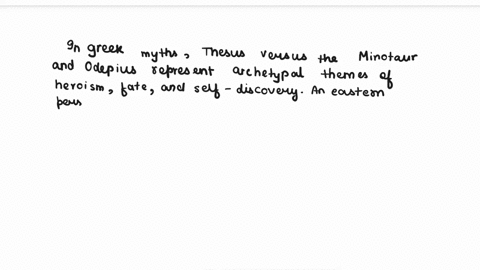 In greek myths, Thesus versus the Minotaur
and Odepius represent archetypal themes of
heroism, fate, and self - discovery. An eastern
pers